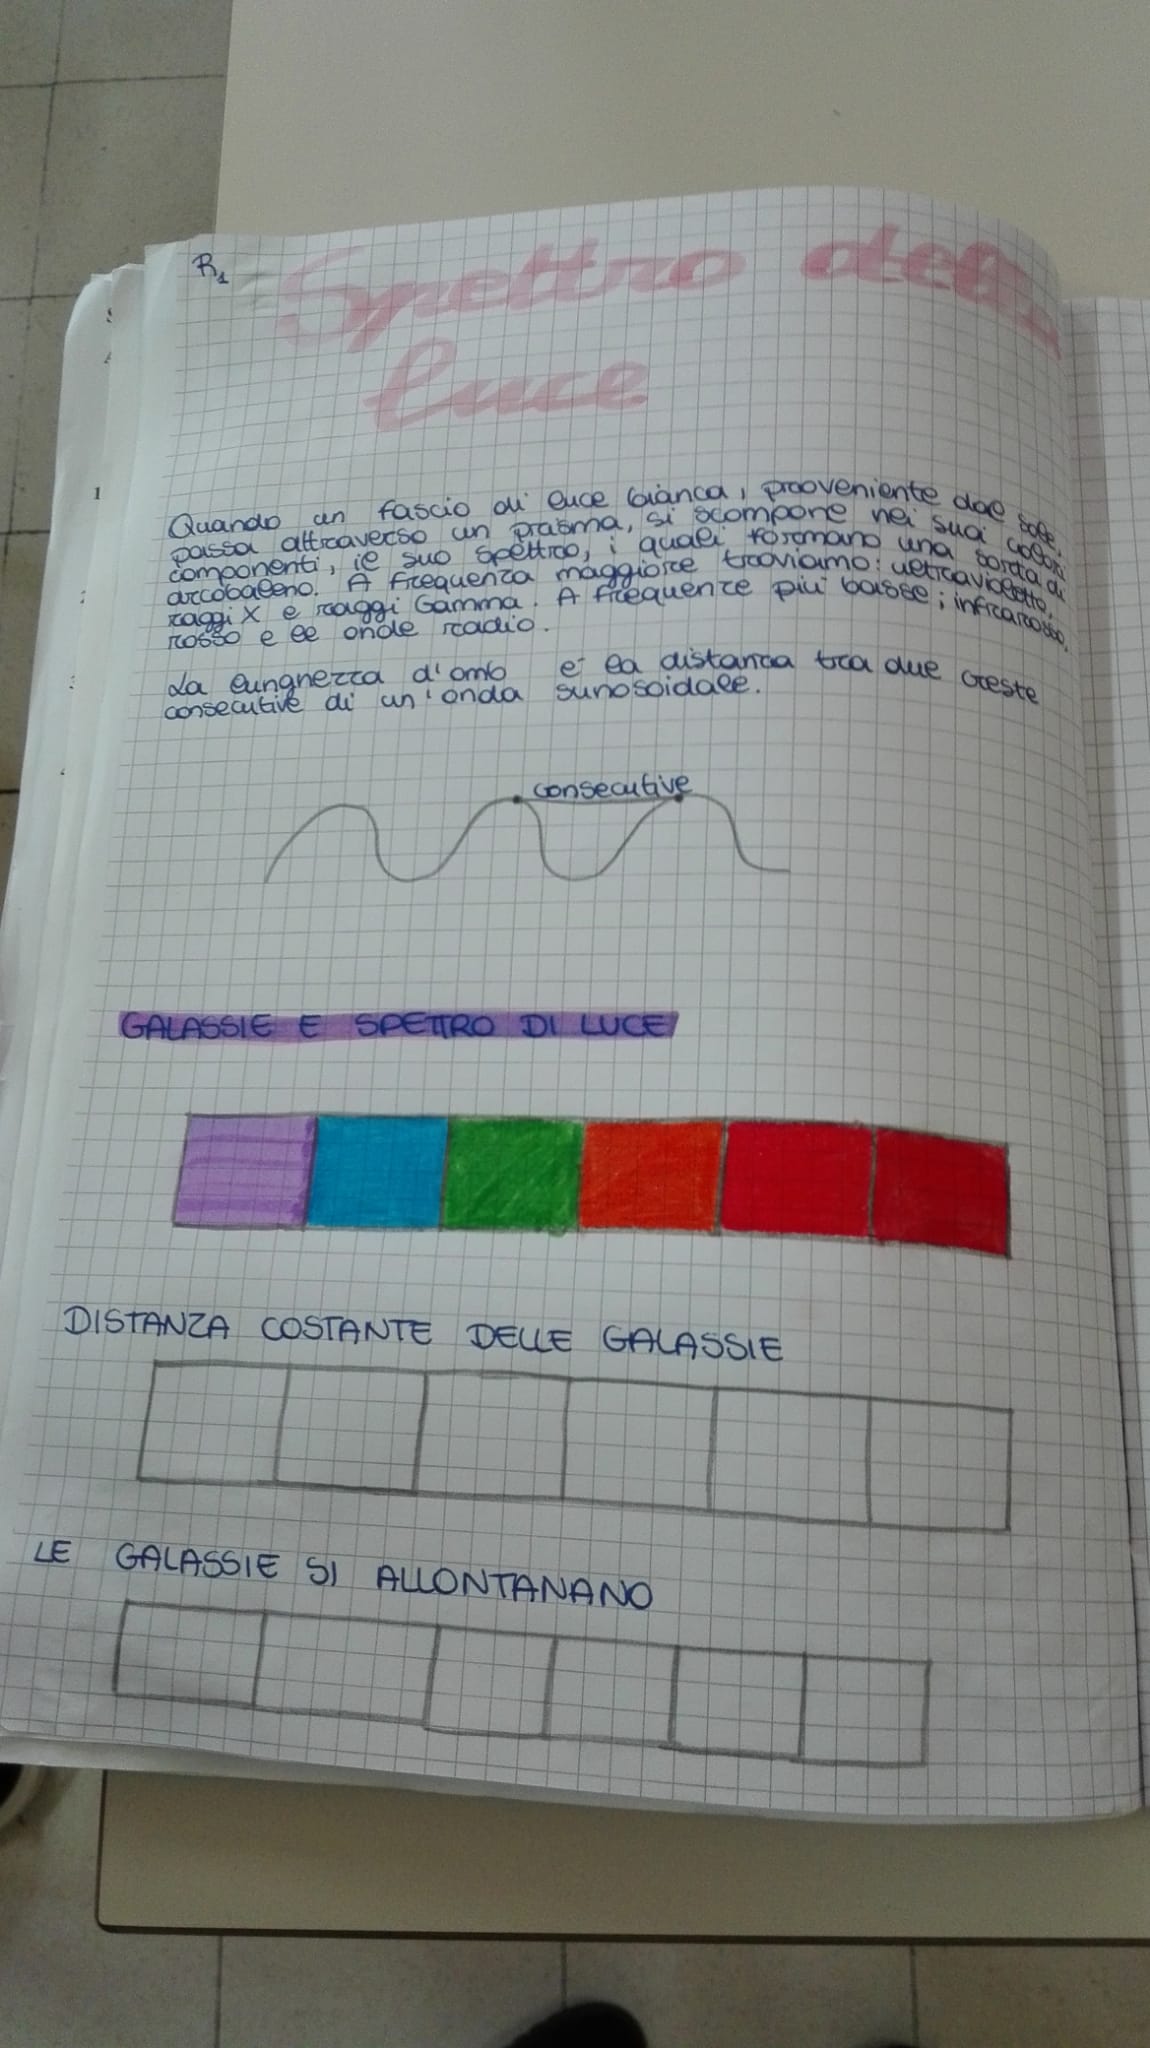 R1
Spettro della
luce
Quando un fascio di luce bianca, prooveniente dal sole,
passa attraverso un prisma, si scompone nei suoi colori
componenti, il suo spettro, i quali formano una sorta di
arcobaleno. A frequenza maggiore troviamo: ultravioletto,
raggi X e raggi Gamma. A frequenze più basse; infrarosso,
rosso e le onde radio.
La lungnezza d'onda è la distanza tra due creste
consecutive di un'onda sunosoidale.
consecutive
GALASSIE E SPETTRO DI LUCE
DISTANZA COSTANTE DELLE GALASSIE
LE GALASSIE SI ALLONTANANO
1